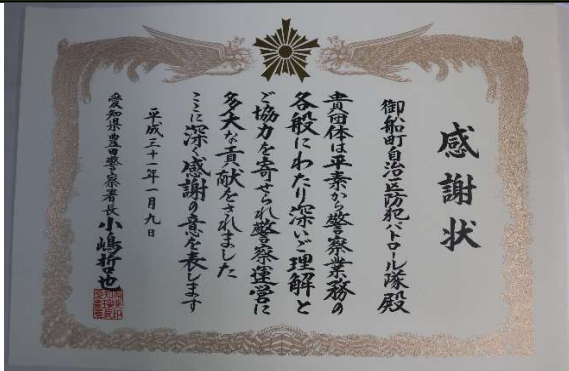 感謝状
御船町自治区防犯パトロール隊殿
貴団体は平素から警察業務の
各般にわたり深いご理解と
ご協力を寄せられ警察運営に
多大な貢献をされました
ここに深く感謝の意を表します
平成三十一年一月九日
愛知県豊田警察署長 小嶋哲也